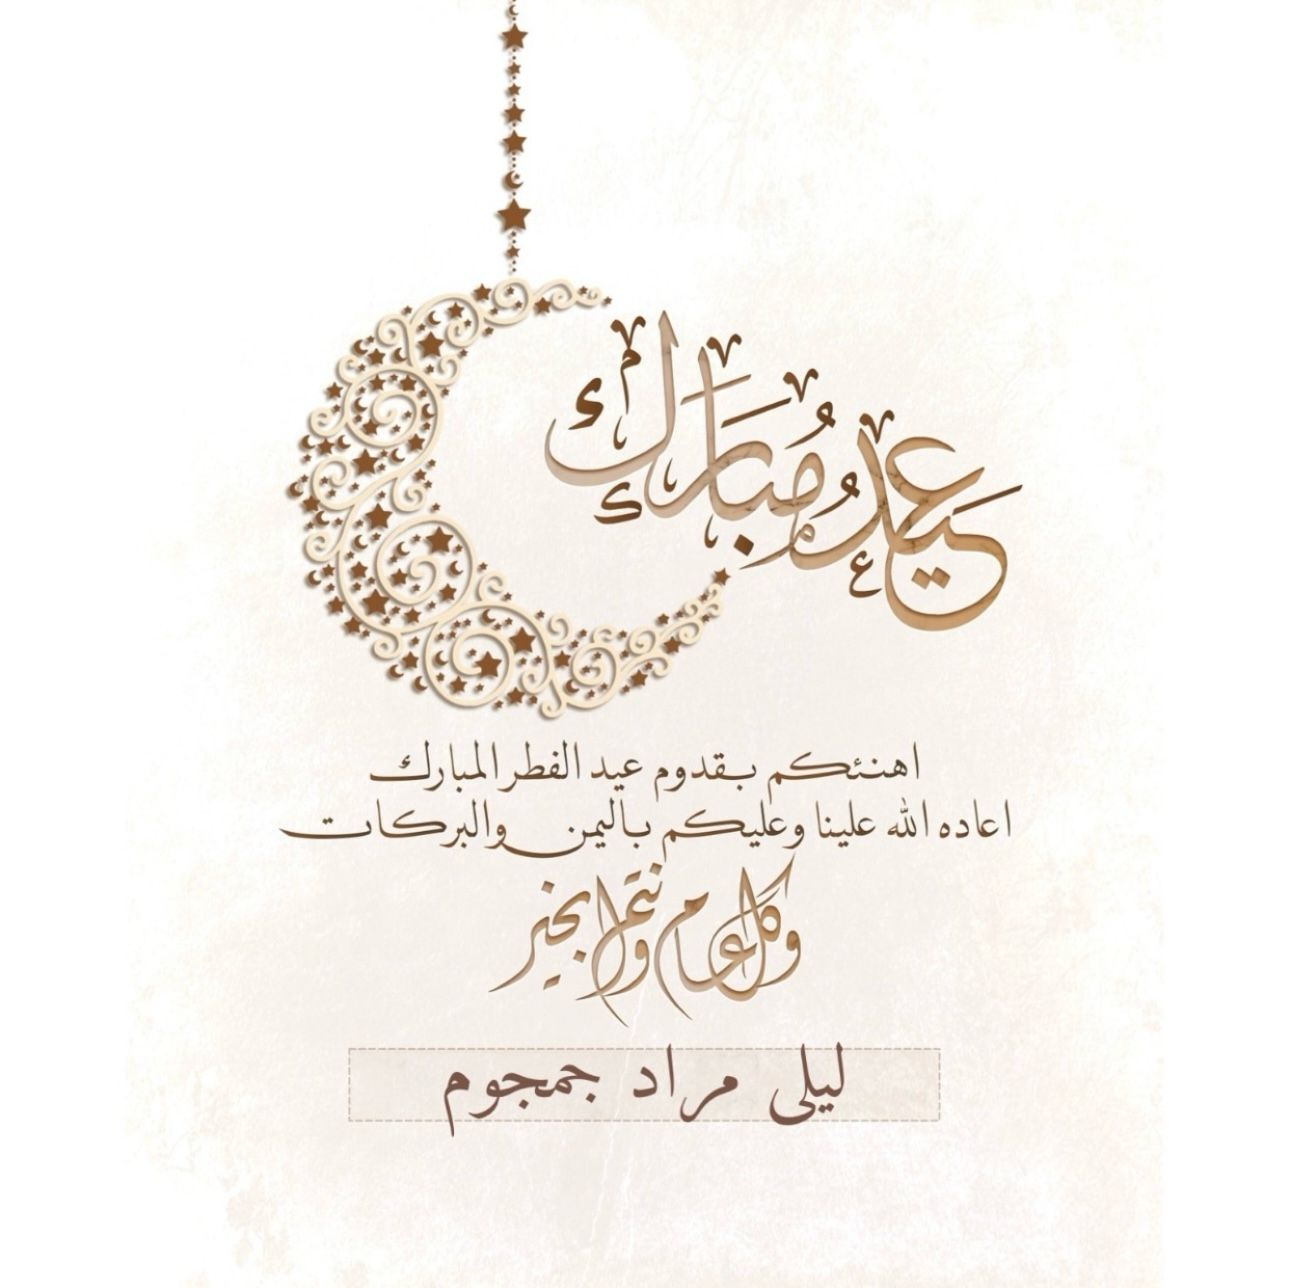 عيد مبارك
اهنئكم بقدوم عيد الفطر المبارك
اعاده الله علينا وعليكم باليمن والبركات
وكل عام وانتم بخير
ليلى مراد جمجوم